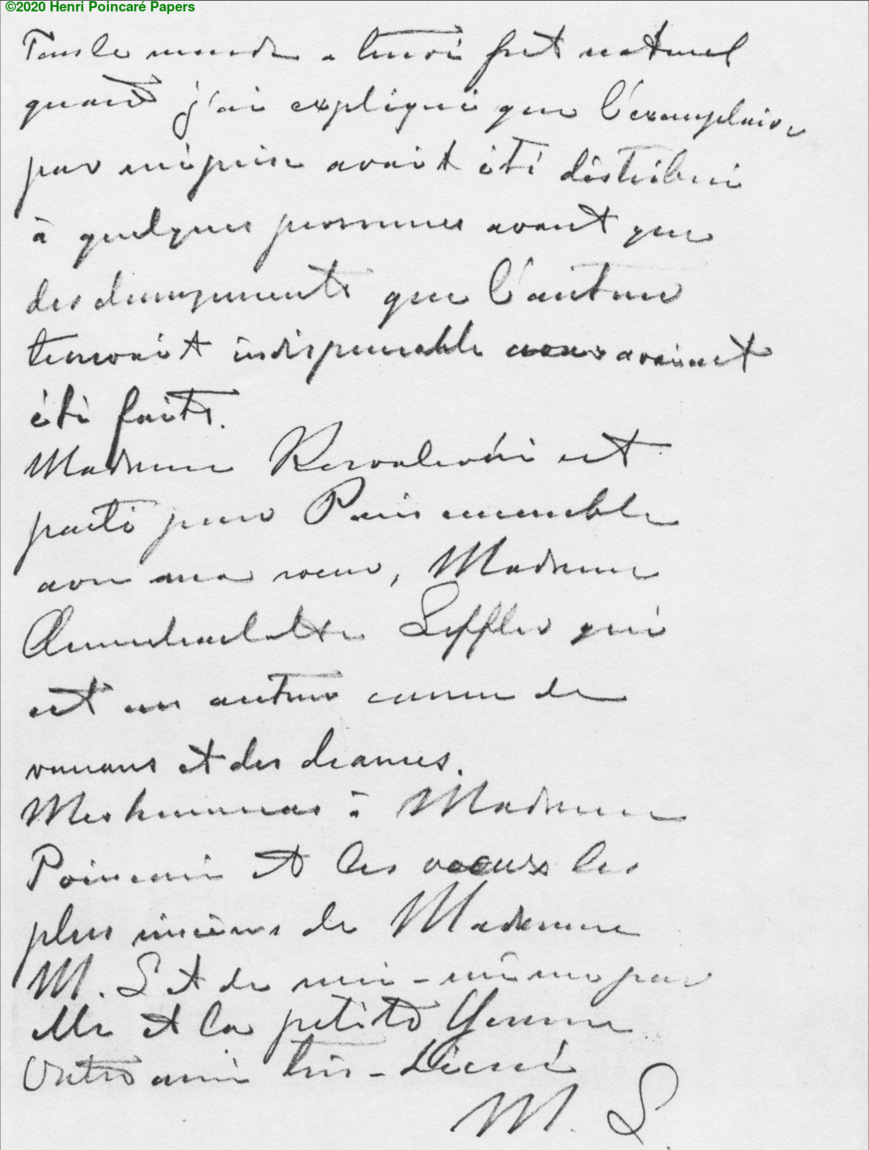 ©2020 Henri Poincaré Papers
Tout le monde a trouvé fort naturel
quand j'ai expliqué que l'exemplaire
par méprise avait été distribué
à quelques personnes avant que
des changements que l'auteur
trouvait indispensable avaient
été faits.
Madame Kowalevski est
parti pour Paris ensemble
avec ma soeur, Madame
Leffler qui
est un auteur connu de
romans et des drames.
Mes hommages à Madame
Poincaré et les voeux les
plus sincères de Madame
M. L et de moi-même pour
elle et la petite Jeanne
Votre ami très-dévoué
M. L.